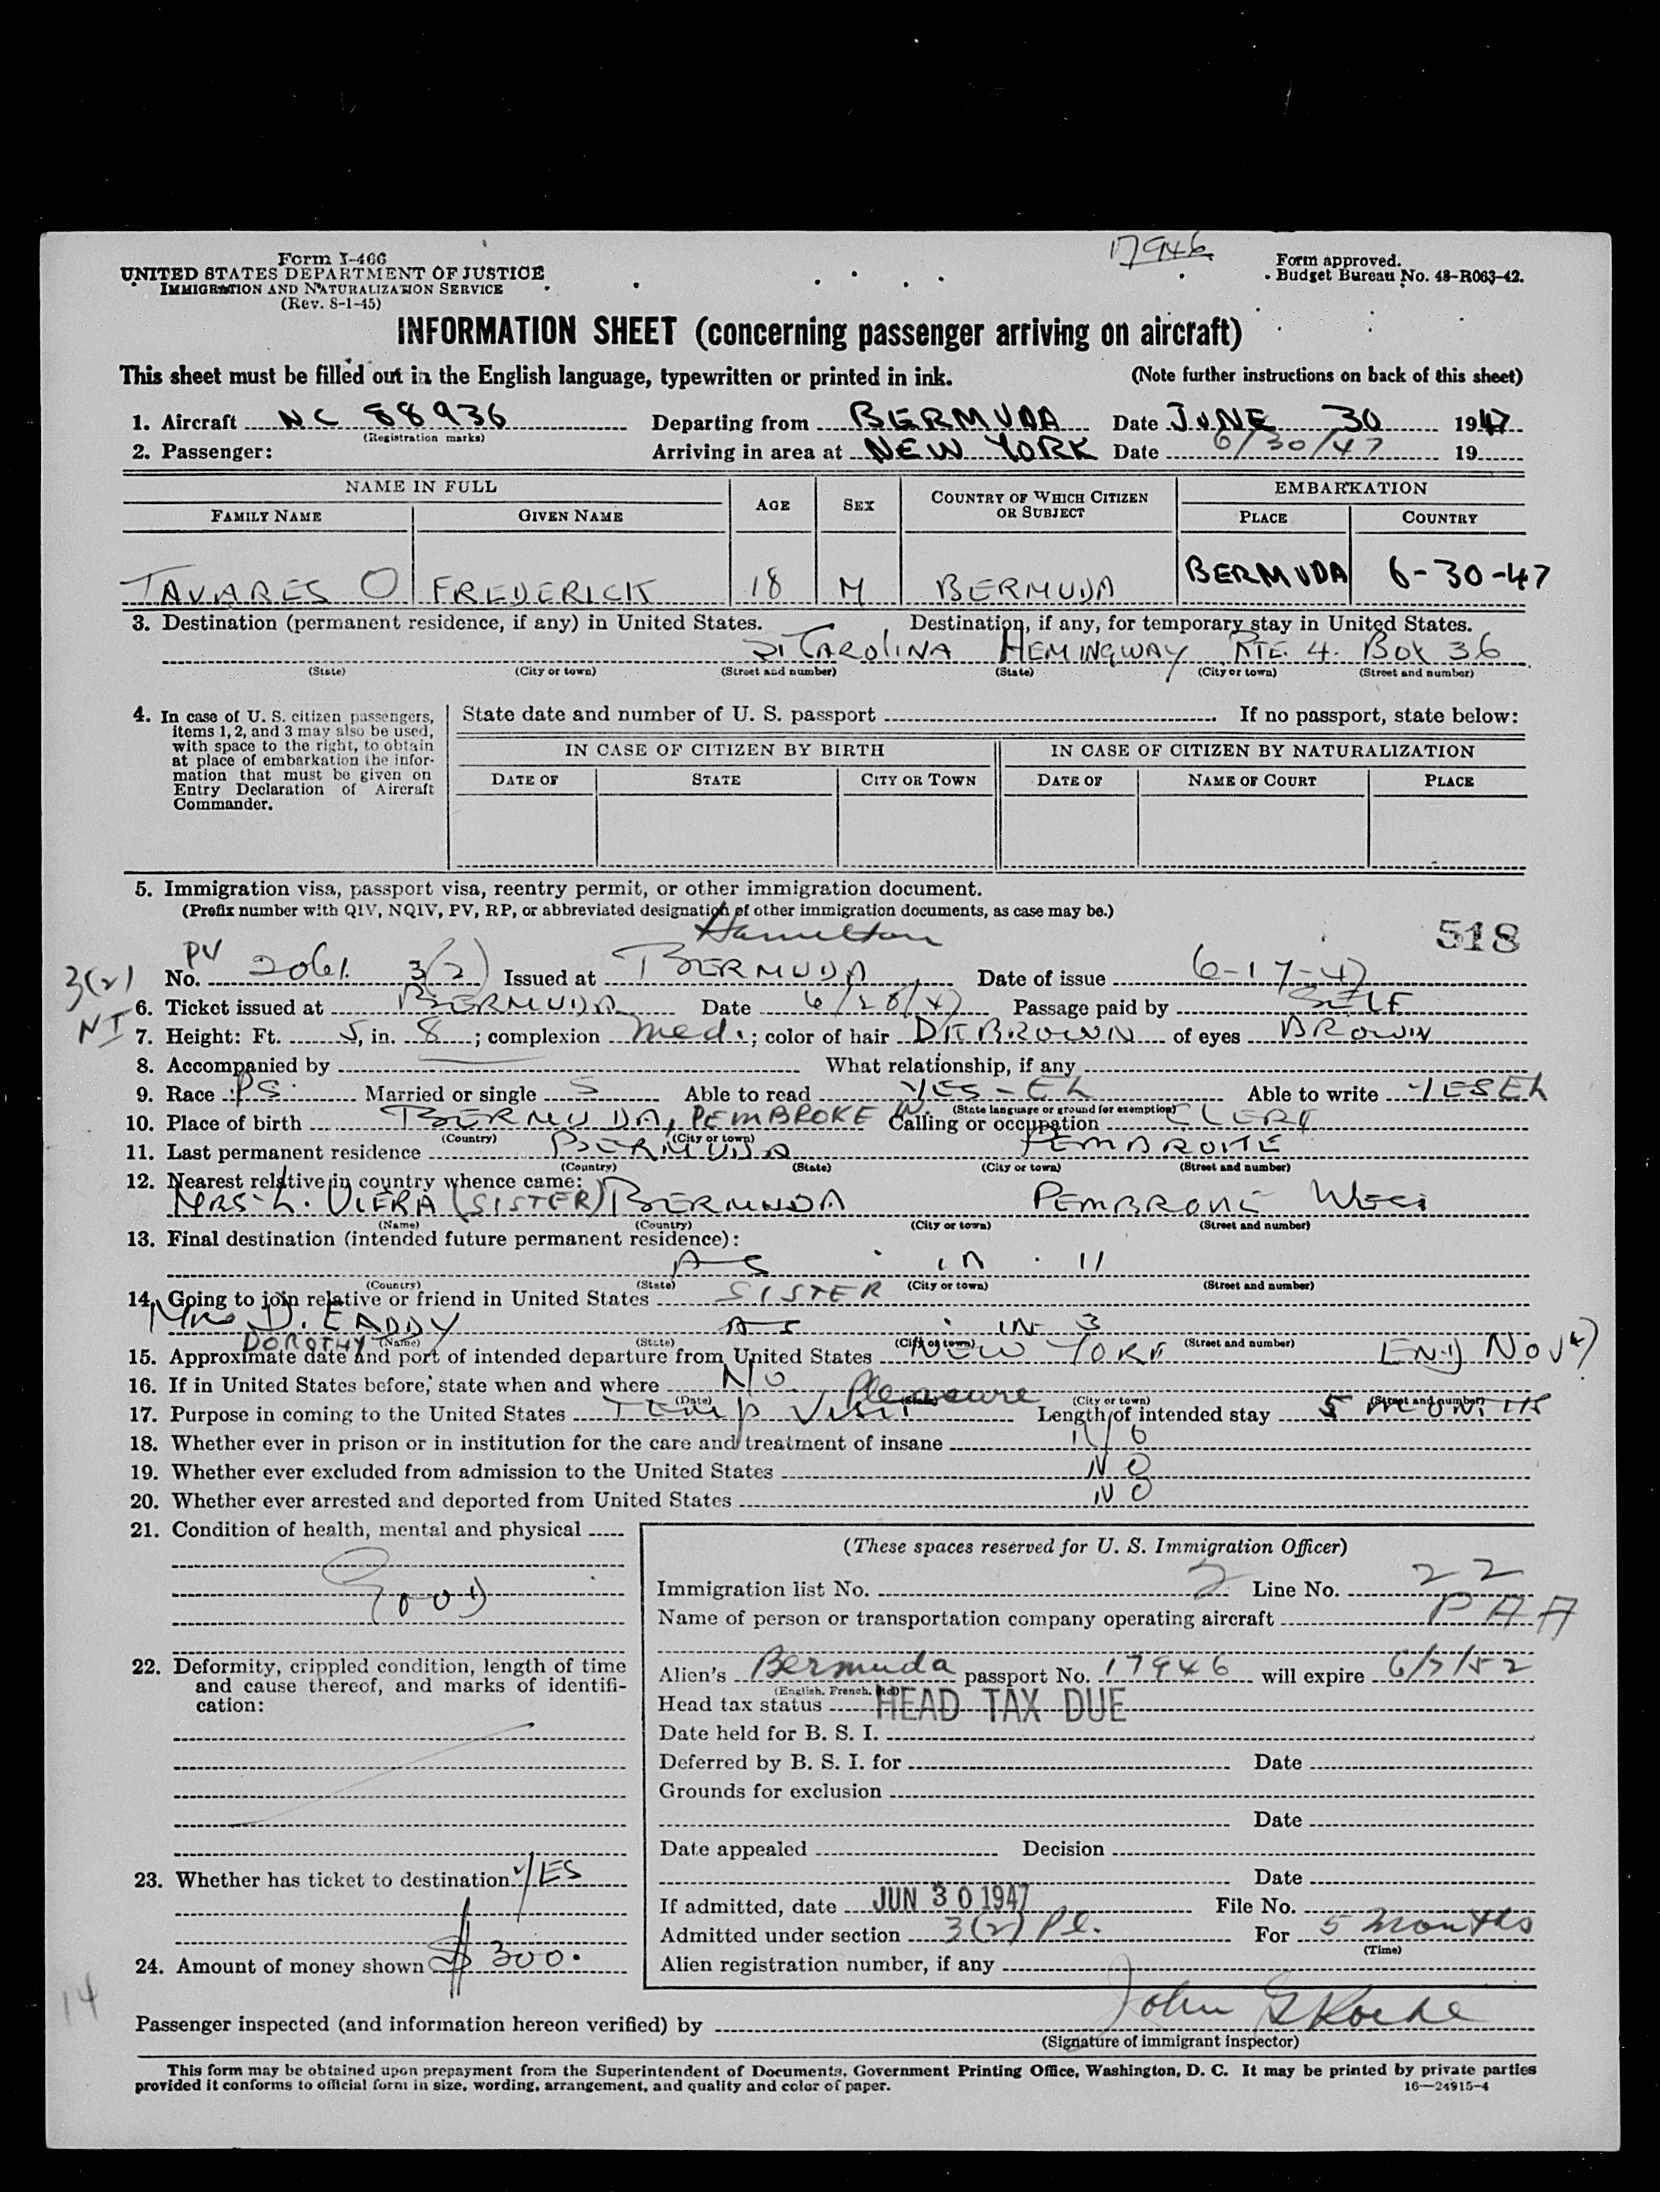 17946
Form I-466
UNITED STATES DEPARTMENT OF JUSTICE
IMMIGRATION AND NATURALIZATION SERVICE
(Rev. 8-1-45)
Form approved.
Budget Bureau No. 43-R063-42.
INFORMATION SHEET (concerning passenger arriving on aircraft)
This sheet must be filled out in the English language, typewritten or printed in ink. (Note further instructions on back of this sheet)
1. Aircraft NC 88936 Departing from BERMUDA Date JUNE 30 1947
(Registration marks)
2. Passenger: Arriving in area at NEW YORK Date 6/30/47 19
NAME IN FULL AGE SEX COUNTRY OF WHICH CITIZEN OR SUBJECT EMBARKATION
FAMILY NAME GIVEN NAME PLACE COUNTRY
TAVARES O FREDERICK 18 M BERMUDA BERMUDA 6-30-47
3. Destination (permanent residence, if any) in United States. Destination, if any, for temporary stay in United States.
S. CAROLINA HEMINGWAY RTE. 4. BOX 36
(State) (City or town) (Street and number) (State) (City or town) (Street and number)
4. In case of U. S. citizen passengers, items 1, 2, and 3 may also be used, with space to the right, to obtain at place of embarkation the information that must be given on Entry Declaration of Aircraft Commander.
State date and number of U. S. passport . If no passport, state below:
IN CASE OF CITIZEN BY BIRTH IN CASE OF CITIZEN BY NATURALIZATION
DATE OF STATE CITY OR TOWN DATE OF NAME OF COURT PLACE
5. Immigration visa, passport visa, reentry permit, or other immigration document.
(Prefix number with QIV, NQIV, PV, RP, or abbreviated designation of other immigration documents, as case may be.)
Hamilton 518
PV
3(2) No. 2061. 3(2) Issued at BERMUDA Date of issue 6-17-47
NI 6. Ticket issued at BERMUDA Date 6/28/47 Passage paid by SELF
7. Height: Ft. 5, in. 8; complexion Med.; color of hair DK BROWN of eyes BROWN
8. Accompanied by What relationship, if any
9. Race PS Married or single S Able to read YES - EL Able to write YES EL
(State language or ground for exemption)
10. Place of birth BERMUDA, PEMBROKE W. Calling or occupation CLERK
(Country) (City or town)
11. Last permanent residence BERMUDA PEMBROKE
(Country) (State) (City or town) (Street and number)
12. Nearest relative in country whence came:
MRS. L. VIERA (SISTER) BERMUDA PEMBROKE WEST
(Name) (Country) (City or town) (Street and number)
13. Final destination (intended future permanent residence):
AS in 11
(Country) (State) (City or town) (Street and number)
14. Going to join relative or friend in United States SISTER
MRS D. EADDY AS IN 3
DOROTHY (Name) (State) (City or town) (Street and number)
15. Approximate date and port of intended departure from United States NEW YORK END NOV 47
16. If in United States before, state when and where NO
(Date) (State) (City or town) (Street and number)
Pleasure
17. Purpose in coming to the United States TEMP VISIT Length of intended stay 5 MONTHS
18. Whether ever in prison or in institution for the care and treatment of insane NO
19. Whether ever excluded from admission to the United States NO
20. Whether ever arrested and deported from United States NO
21. Condition of health, mental and physical
GOOD
22. Deformity, crippled condition, length of time and cause thereof, and marks of identification:
23. Whether has ticket to destination YES
24. Amount of money shown $300.
14
(These spaces reserved for U. S. Immigration Officer)
Immigration list No. 2 Line No. 22
Name of person or transportation company operating aircraft PAA
Alien's Bermuda passport No. 17946 will expire 6/7/52
(English, French, etc.)
Head tax status HEAD TAX DUE
Date held for B. S. I.
Deferred by B. S. I. for Date
Grounds for exclusion
Date
Date appealed Decision
Date
If admitted, date JUN 30 1947 File No.
Admitted under section 3(2) Pl. For 5 months
(Time)
Alien registration number, if any
Passenger inspected (and information hereon verified) by John G Roche
(Signature of immigrant inspector)
This form may be obtained upon prepayment from the Superintendent of Documents, Government Printing Office, Washington, D. C. It may be printed by private parties
provided it conforms to official form in size, wording, arrangement, and quality and color of paper. 16—24915-4